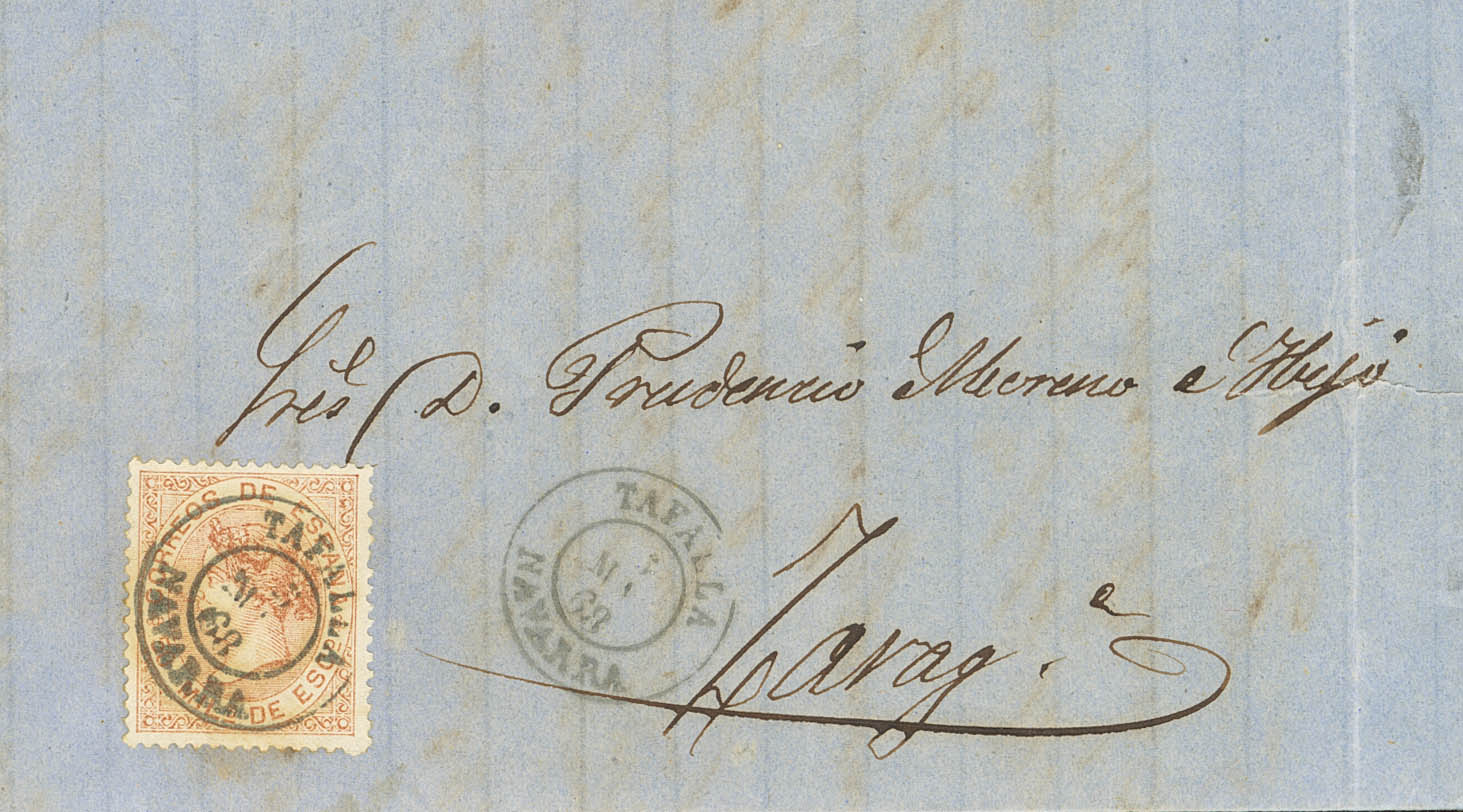 Sres D. Prudencio Moreno e Hijo
Zarag.a
CORREOS DE ESPAÑA
DE ESCO
TAFALLA
68
NAVARRA
TAFALLA
68
NAVARRA